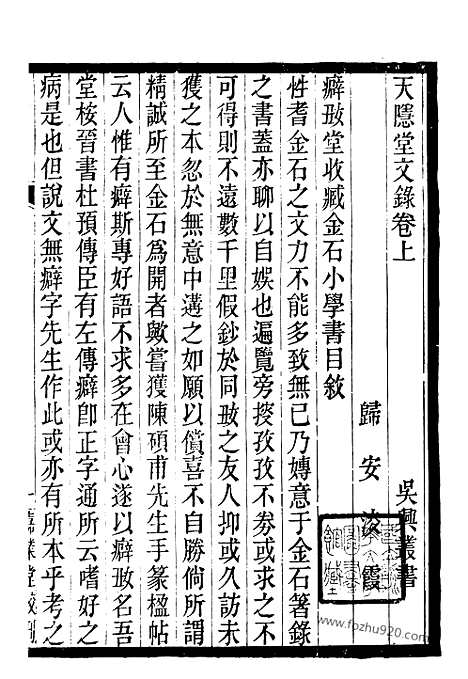 天隱堂文錄卷上
吳興叢書
歸安凌霞
癖㪃堂收臧金石小學書目敘
性耆金石之文力不能多致無已乃嫥意于金石箸錄
之書蓋亦聊以自娛也遍覽旁㨙孜孜不劵或求之不
可得則不遠數千里假鈔於同㪃之友人抑或久訪未
獲之本忽於無意中遘之如願以償喜不自勝倘所謂
精誠所至金石爲開者歟嘗獲陳碩甫先生手篆楹帖
云人惟有癖斯專好語不求多在會心遂以癖㪃名吾
堂桉晉書杜預傳臣有左傳癖卽正字通所云嗜好之
病是也但說文無癖字先生作此或亦有所本乎考之
www.fozhu920.com